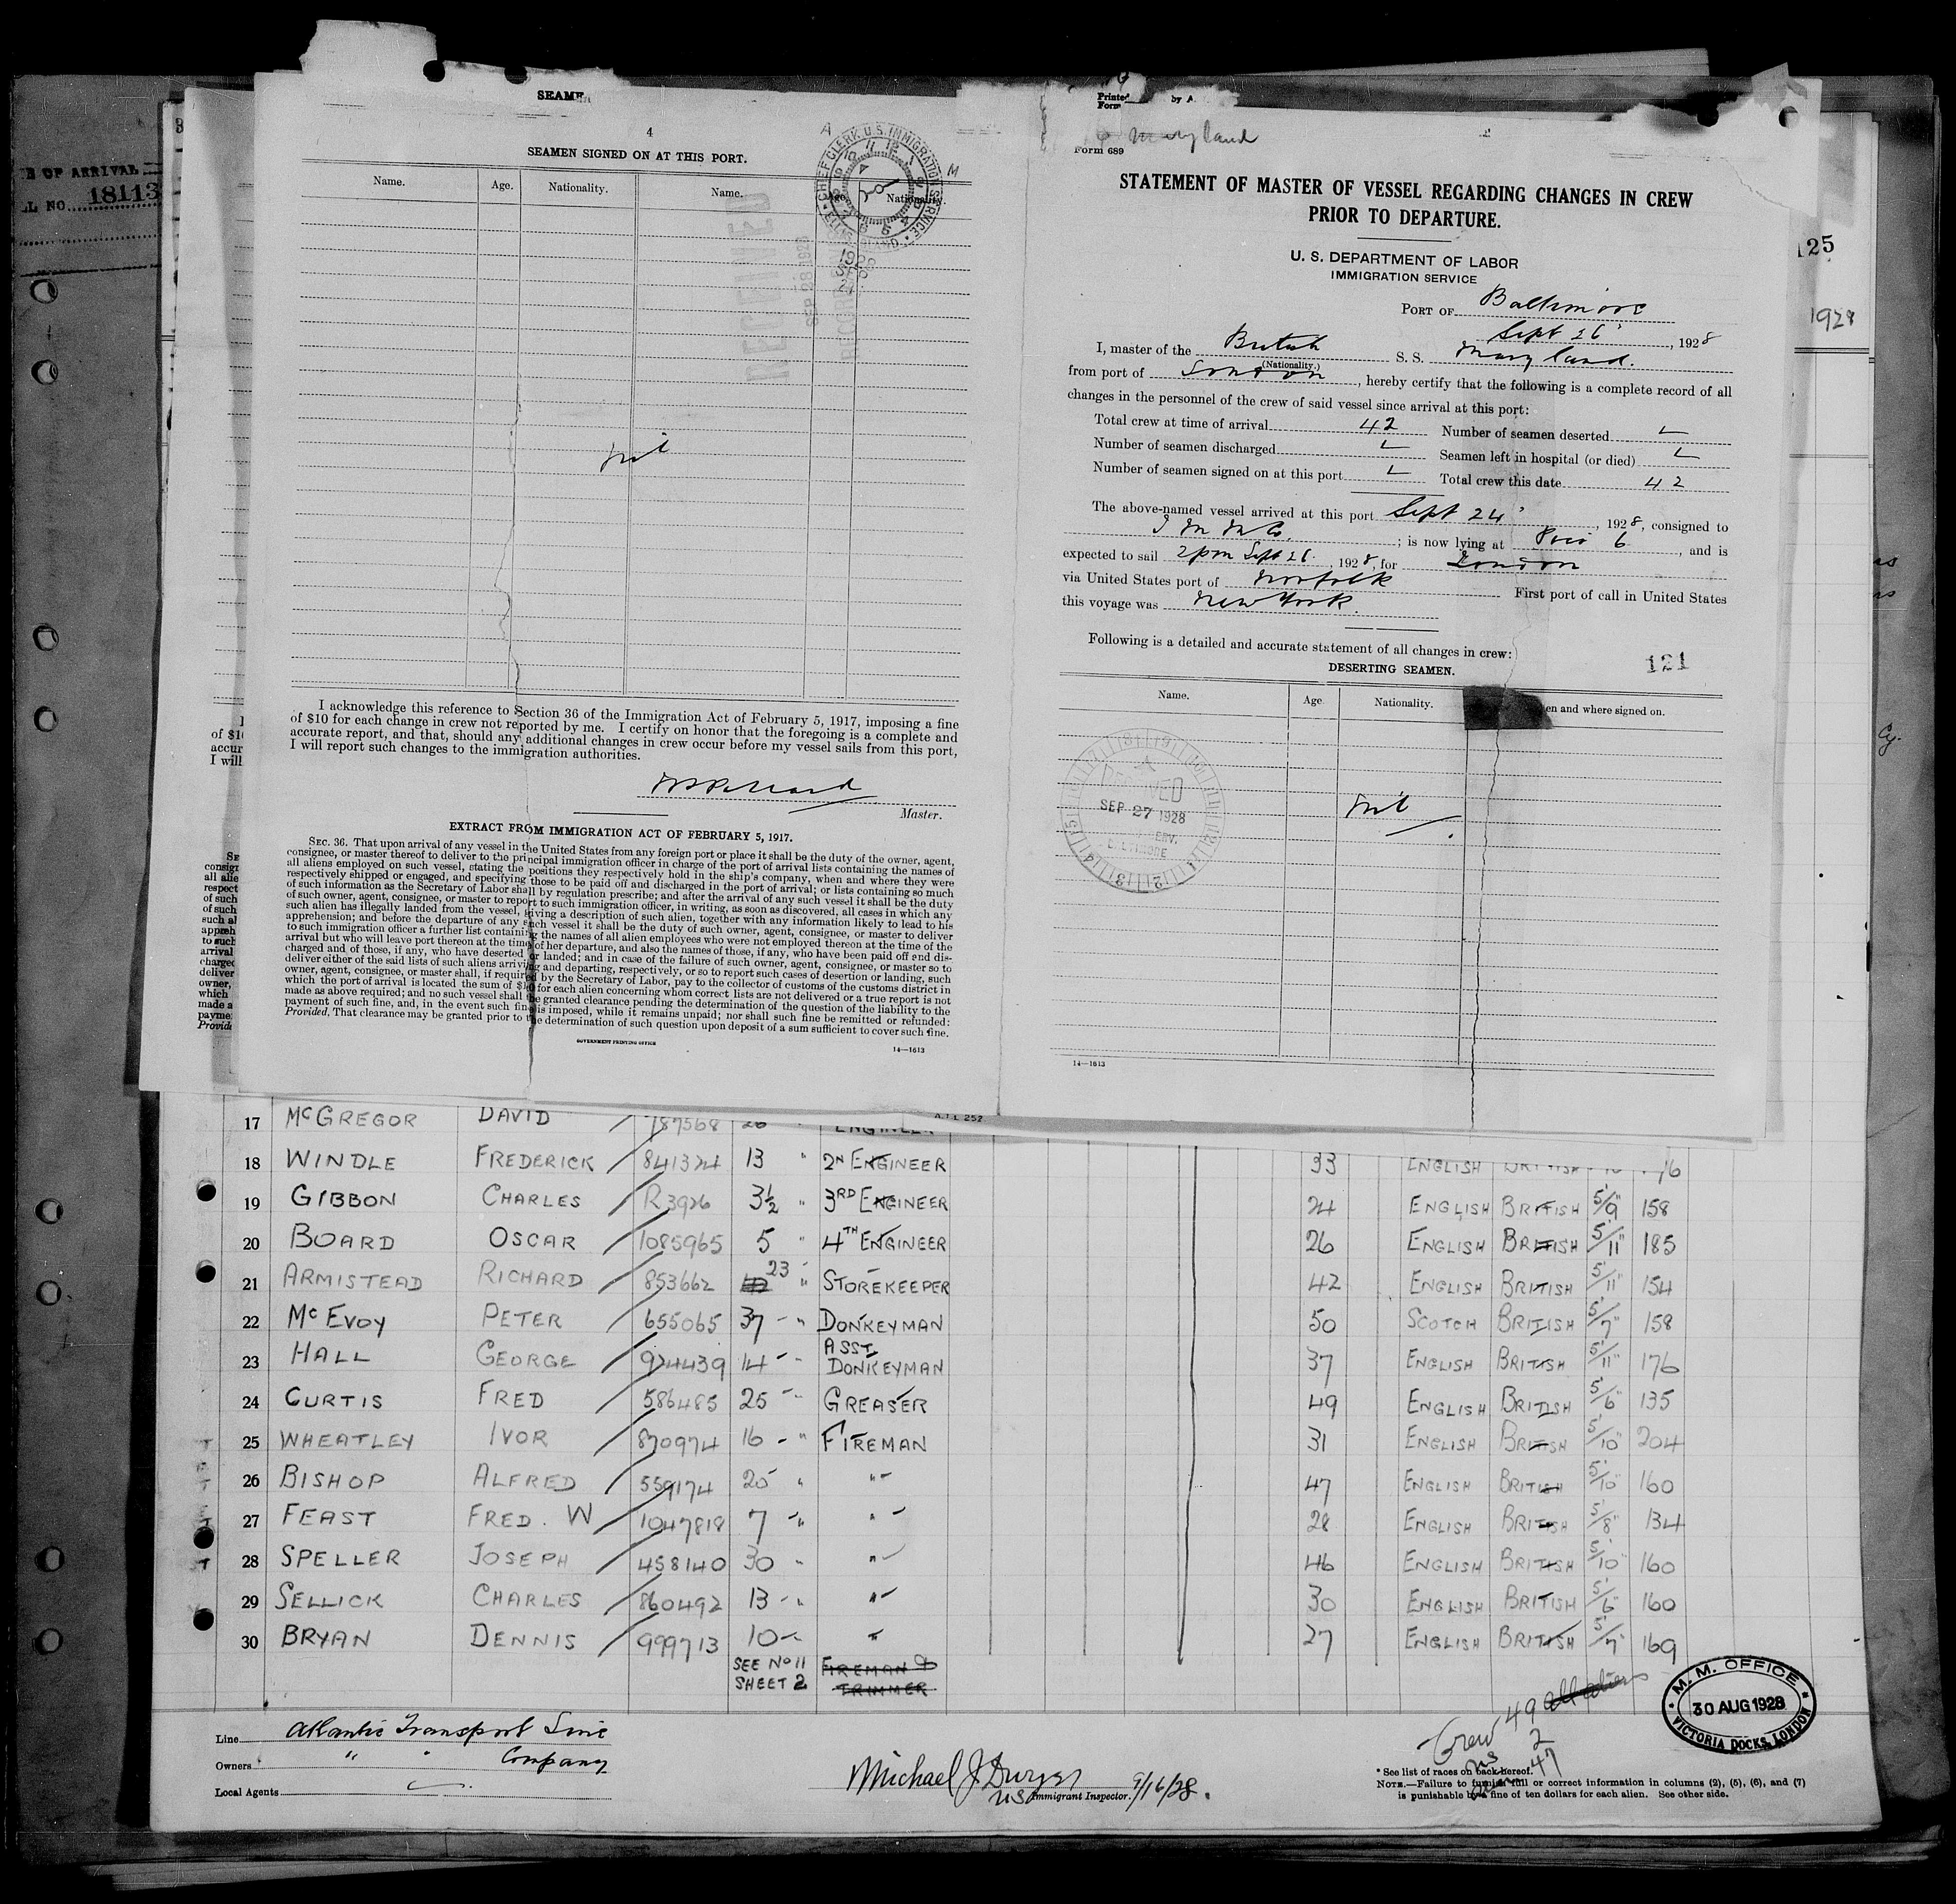 E OF ARRIVAL
L NO. 18113
SEAME
4
SEAMEN SIGNED ON AT THIS PORT.
Name. Age. Nationality. Name. Age. Nationality.
CHIEF CLERK, U.S. IMMIGRATION SERVICE
SEP 28 1928
Nil
I acknowledge this reference to Section 36 of the Immigration Act of February 5, 1917, imposing a fine
of $10 for each change in crew not reported by me. I certify on honor that the foregoing is a complete and
accurate report, and that, should any additional changes in crew occur before my vessel sails from this port,
I will report such changes to the immigration authorities.
Master.
EXTRACT FROM IMMIGRATION ACT OF FEBRUARY 5, 1917.
SEC. 36. That upon arrival of any vessel in the United States from any foreign port or place it shall be the duty of the owner, agent,
consignee, or master thereof to deliver to the principal immigration officer in charge of the port of arrival lists containing the names of
all aliens employed on such vessel, stating the positions they respectively hold in the ship's company, when and where they were
respectively shipped or engaged, and specifying those to be paid off and discharged in the port of arrival; or lists containing so much
of such information as the Secretary of Labor shall by regulation prescribe; and after the arrival of any such vessel it shall be the duty
of such owner, agent, consignee, or master to report to such immigration officer, in writing, as soon as discovered, all cases in which any
such alien has illegally landed from the vessel, giving a description of such alien, together with any information likely to lead to his
apprehension; and before the departure of any such vessel it shall be the duty of such owner, agent, consignee, or master to deliver
to such immigration officer a further list containing the names of all alien employees who were not employed thereon at the time of the
arrival but who will leave port thereon at the time of her departure, and also the names of those, if any, who have been paid off and dis-
charged and of those, if any, who have deserted or landed; and in case of the failure of such owner, agent, consignee, or master so to
deliver either of the said lists of such aliens arriving and departing, respectively, or so to report such cases of desertion or landing, such
owner, agent, consignee, or master shall, if required by the Secretary of Labor, pay to the collector of customs of the customs district in
which the port of arrival is located the sum of $10 for each alien concerning whom correct lists are not delivered or a true report is not
made as above required; and no such vessel shall be granted clearance pending the determination of the question of the liability to the
payment of such fine, and, in the event such fine is imposed, while it remains unpaid; nor shall such fine be remitted or refunded:
Provided, That clearance may be granted prior to the determination of such question upon deposit of a sum sufficient to cover such fine.
GOVERNMENT PRINTING OFFICE 14—1613
Printed by A.
Form
Maryland
Form 689
STATEMENT OF MASTER OF VESSEL REGARDING CHANGES IN CREW
PRIOR TO DEPARTURE.
U. S. DEPARTMENT OF LABOR
IMMIGRATION SERVICE
PORT OF Baltimore
Sept 26, 1928
I, master of the British S. S. Maryland.
(Nationality.)
from port of London, hereby certify that the following is a complete record of all
changes in the personnel of the crew of said vessel since arrival at this port:
Total crew at time of arrival 42 Number of seamen deserted
Number of seamen discharged Seamen left in hospital (or died)
Number of seamen signed on at this port Total crew this date 42
The above-named vessel arrived at this port Sept 24, 1928, consigned to
I M M Co. ; is now lying at Pier 6, and is
expected to sail 2 pm Sept 26, 1928, for London
via United States port of Norfolk First port of call in United States
this voyage was New York.
Following is a detailed and accurate statement of all changes in crew:
121
DESERTING SEAMEN.
Name. Age. Nationality. en and where signed on.
RECEIVED
SEP 27 1928
BALTIMORE
Nil
14—1613
125
1928
17 McGREGOR DAVID 787568 26 ENGINEER
18 WINDLE FREDERICK 841324 13 " 2ND ENGINEER 33 ENGLISH BRITISH
19 GIBBON CHARLES R3926 3½ " 3RD ENGINEER 24 ENGLISH BRITISH 5'/9" 158
20 BOARD OSCAR 1085965 5 " 4TH ENGINEER 26 ENGLISH BRITISH 5'/11" 185
21 ARMISTEAD RICHARD 853662 23 " STOREKEEPER 42 ENGLISH BRITISH 5'/11" 154
22 McEVOY PETER 655065 37 " DONKEYMAN 50 SCOTCH BRITISH 5'/7" 158
23 HALL GEORGE 974439 14 " ASST DONKEYMAN 37 ENGLISH BRITISH 5'/11" 176
24 CURTIS FRED 586485 25 " GREASER 49 ENGLISH BRITISH 5'/6" 135
25 WHEATLEY IVOR 870974 16 " FIREMAN 31 ENGLISH BRITISH 5'/10" 204
26 BISHOP ALFRED 559174 25 " " 47 ENGLISH BRITISH 5'/10" 160
27 FEAST FRED. W 1047818 7 " " 28 ENGLISH BRITISH 5'/8" 134
28 SPELLER JOSEPH 458140 30 " " 46 ENGLISH BRITISH 5'/10" 160
29 SELLICK CHARLES 860492 13 " " 30 ENGLISH BRITISH 5'/6" 160
30 BRYAN DENNIS 999713 10 " 27 ENGLISH BRITISH 5'/7" 169
SEE No 11 FIREMAN &
SHEET 2 TRIMMER
Line Atlantic Transport Line
Owners " " Company
Local Agents
Michael J Dwyer
Immigrant Inspector. 9/16/28.
Crew 49 all aliens
2
47
M. M. OFFICE
30 AUG 1928
VICTORIA DOCKS, LONDON
* See list of races on back hereof.
NOTE.—Failure to furnish full or correct information in columns (2), (5), (6), and (7)
is punishable by a fine of ten dollars for each alien. See other side.